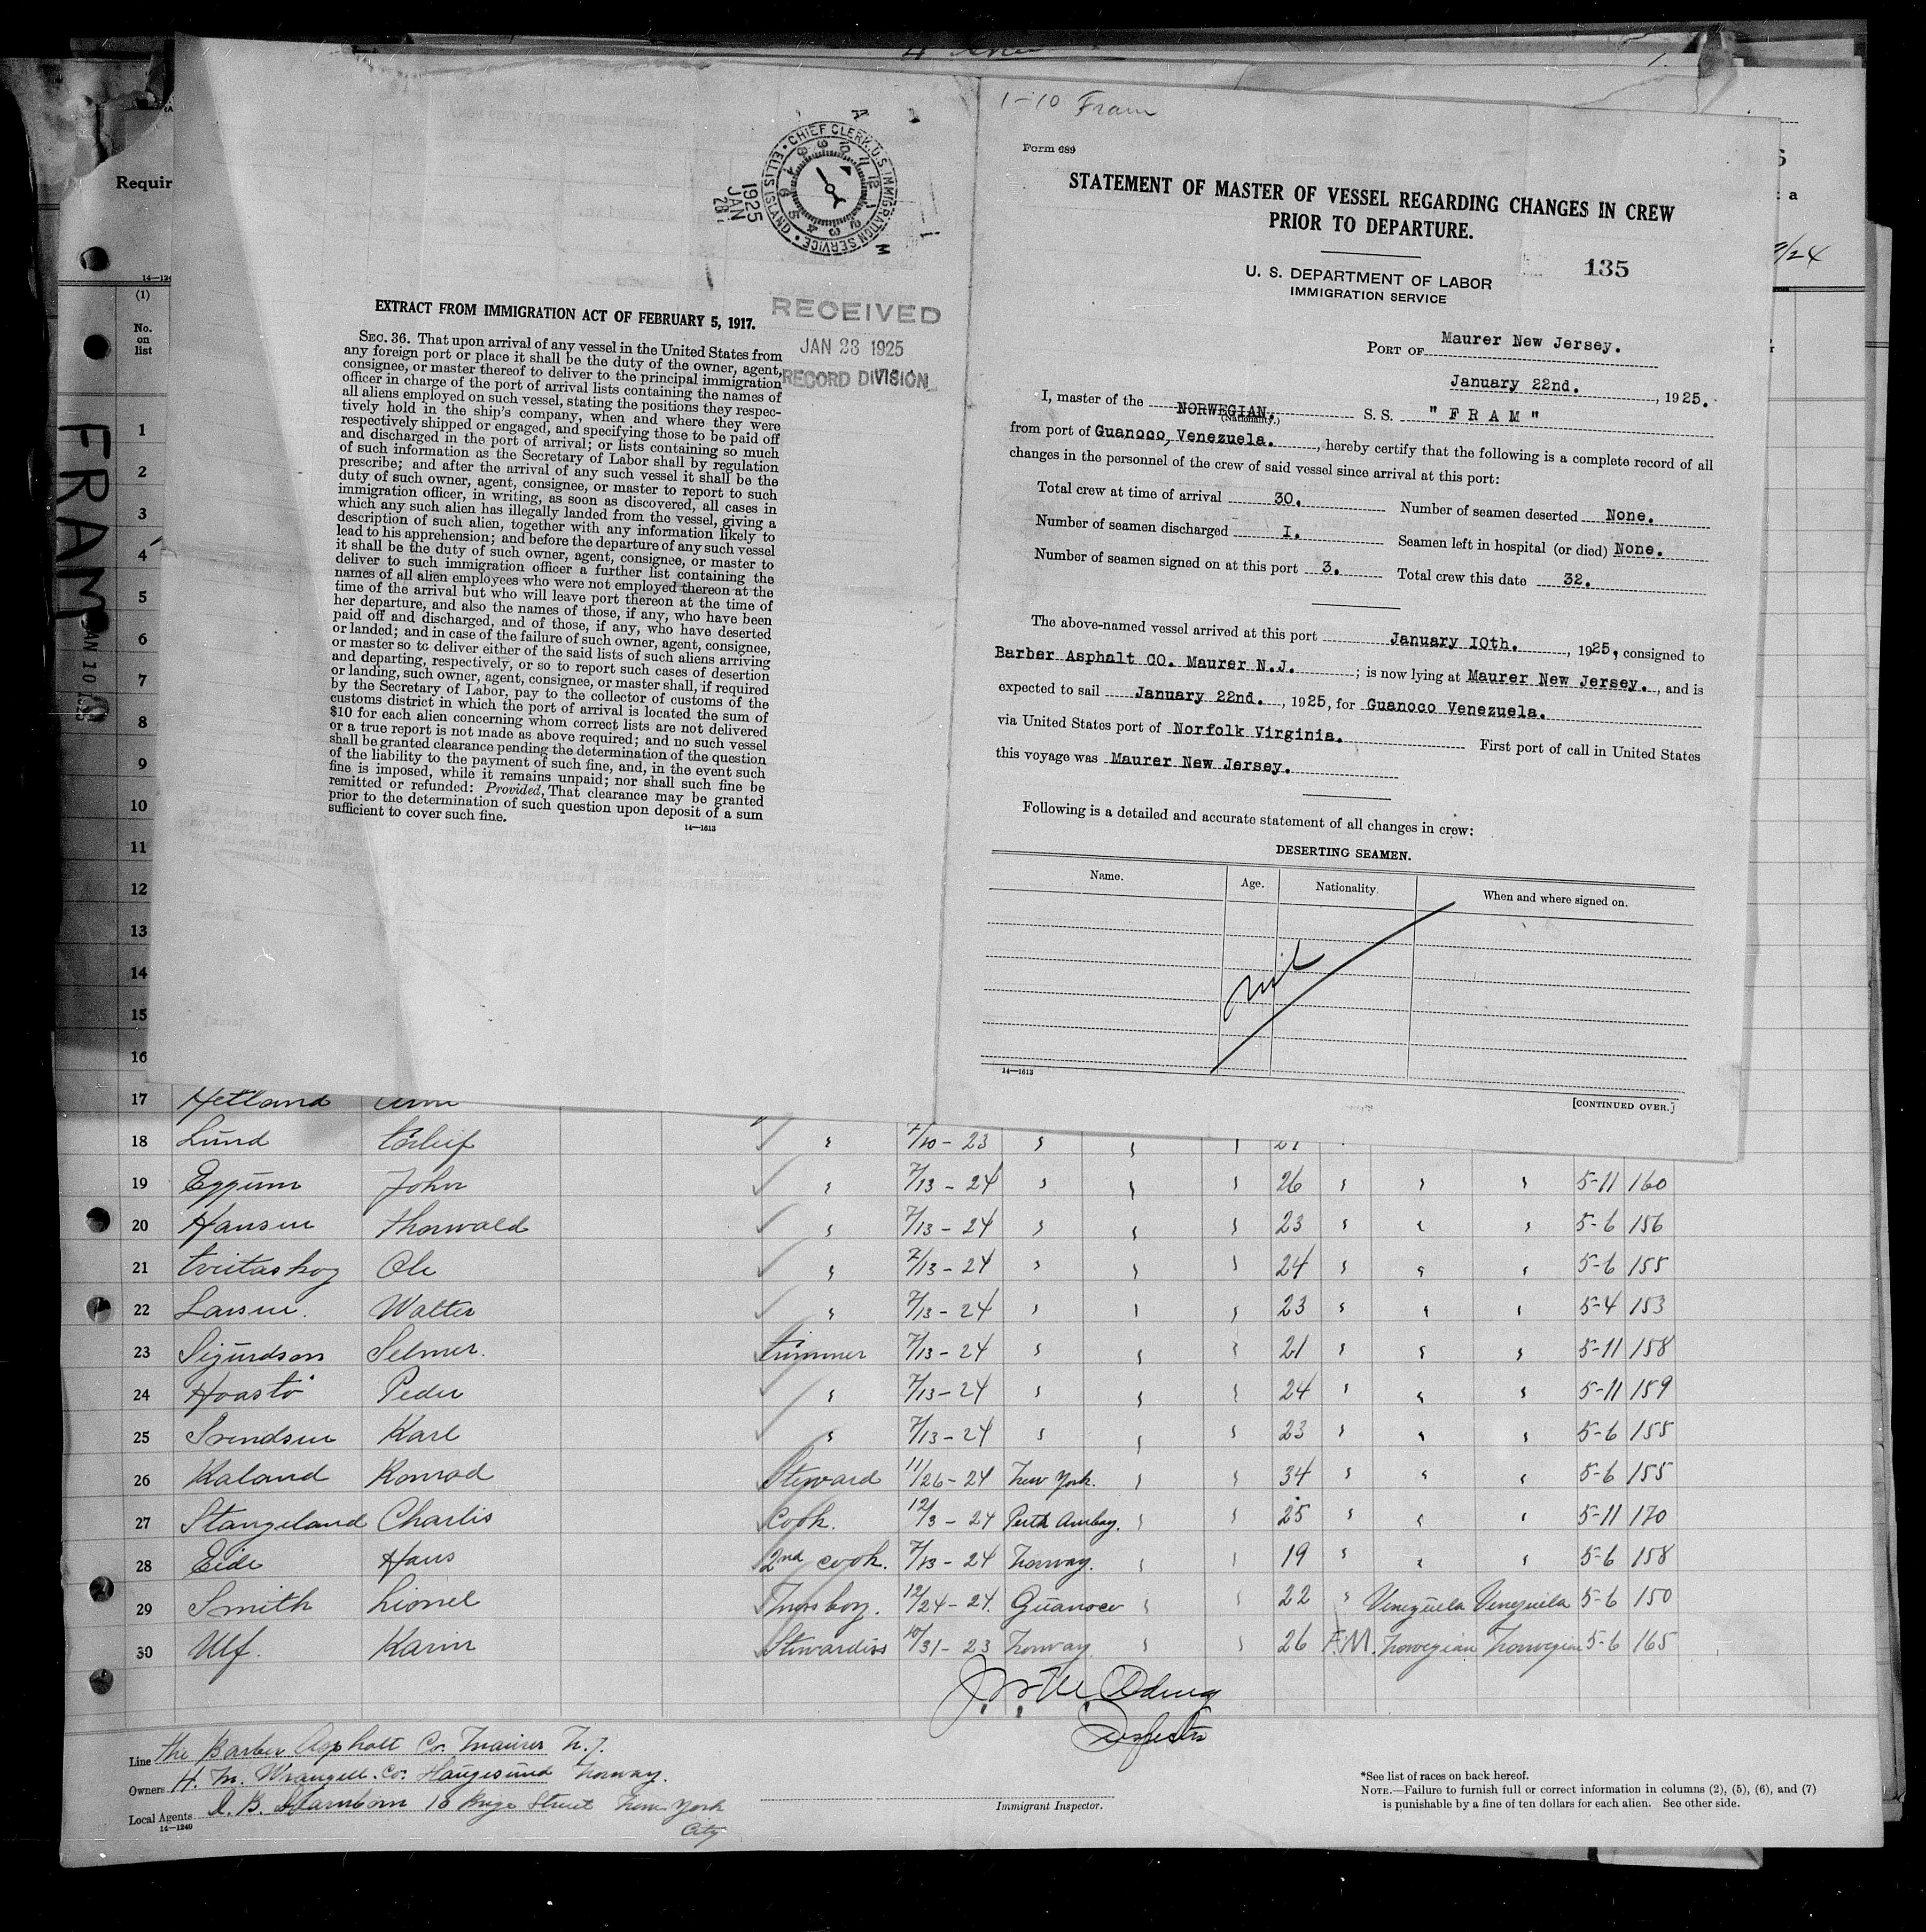 Requir
14—124
(1)
No.
on
list
FRAM
JAN 10 1925
CHIEF CLERK, U.S. IMMIGRATION SERVICE
ELLIS ISLAND
1925
JAN
28
RECEIVED
JAN 23 1925
RECORD DIVISION
EXTRACT FROM IMMIGRATION ACT OF FEBRUARY 5, 1917.
SEC. 36. That upon arrival of any vessel in the United States from
any foreign port or place it shall be the duty of the owner, agent,
consignee, or master thereof to deliver to the principal immigration
officer in charge of the port of arrival lists containing the names of
all aliens employed on such vessel, stating the positions they respec-
tively hold in the ship's company, when and where they were
respectively shipped or engaged, and specifying those to be paid off
and discharged in the port of arrival; or lists containing so much
of such information as the Secretary of Labor shall by regulation
prescribe; and after the arrival of any such vessel it shall be the
duty of such owner, agent, consignee, or master to report to such
immigration officer, in writing, as soon as discovered, all cases in
which any such alien has illegally landed from the vessel, giving a
description of such alien, together with any information likely to
lead to his apprehension; and before the departure of any such vessel
it shall be the duty of such owner, agent, consignee, or master to
deliver to such immigration officer a further list containing the
names of all alien employees who were not employed thereon at the
time of the arrival but who will leave port thereon at the time of
her departure, and also the names of those, if any, who have been
paid off and discharged, and of those, if any, who have deserted
or landed; and in case of the failure of such owner, agent, consignee,
or master so to deliver either of the said lists of such aliens arriving
and departing, respectively, or so to report such cases of desertion
or landing, such owner, agent, consignee, or master shall, if required
by the Secretary of Labor, pay to the collector of customs of the
customs district in which the port of arrival is located the sum of
$10 for each alien concerning whom correct lists are not delivered
or a true report is not made as above required; and no such vessel
shall be granted clearance pending the determination of the question
of the liability to the payment of such fine, and, in the event such
fine is imposed, while it remains unpaid; nor shall such fine be
remitted or refunded: Provided, That clearance may be granted
prior to the determination of such question upon deposit of a sum
sufficient to cover such fine.
14—1613
1-10 Fram
Form 689
STATEMENT OF MASTER OF VESSEL REGARDING CHANGES IN CREW
PRIOR TO DEPARTURE.
135
U. S. DEPARTMENT OF LABOR
IMMIGRATION SERVICE
PORT OF Maurer New Jersey.
January 22nd., 1925.
I, master of the NORWEGIAN. S. S. " F R A M "
(Nationality.)
from port of Guanoco, Venezuela., hereby certify that the following is a complete record of all
changes in the personnel of the crew of said vessel since arrival at this port:
Total crew at time of arrival 30. Number of seamen deserted None.
Number of seamen discharged I. Seamen left in hospital (or died) None.
Number of seamen signed on at this port 3. Total crew this date 32.
The above-named vessel arrived at this port January I0th., 1925, consigned to
Barber Asphalt CO. Maurer N.J. ; is now lying at Maurer New Jersey., and is
expected to sail January 22nd., 1925, for Guanoco Venezuela.
via United States port of Norfolk Virginia. First port of call in United States
this voyage was Maurer New Jersey.
Following is a detailed and accurate statement of all changes in crew:
DESERTING SEAMEN.
Name. Age. Nationality. When and where signed on.
nil
14—1613
[CONTINUED OVER.]
1
2
3
4
5
6
7
8
9
10
11
12
13
14
15
16
17 Hetland
18 Lund 7/10-23
19 Eggum John 7/13-24 26 5-11 160
20 Hansen Thorwald 7/13-24 23 5-6 156
21 Ole 7/13-24 24 5-6 155
22 Larsen. Walter 7/13-24 23 5-4 153
23 Sigurdson Selmer. trimmer 7/13-24 21 5-11 158
24 Peder 7/13-24 24 5-11 159
25 Svendsen Karl 7/13-24 23 5-6 155
26 Kaland Konrad Steward 11/26-24 New York. 34 5-6 155
27 Stangeland Charlis Cook. 12/3-24 Perth Amboy. 25 5-11 170
28 Eide Hans 2nd cook. 7/13-24 Norway. 19 5-6 158
29 Smith Lionel Messboy. 12/24-24. Guanoco 22 Venezuela Venezuela 5-6 150
30 Ulf. Karin Stewardiss 10/31-23 Norway 26 F.M. Norwegian Norwegian 5-6 165
Line The Barber Asphalt Co. Maurer N.J.
Owners H. M. Wrangell. Co. Haugesund Norway.
Local Agents Street New York
City
14—1240
Immigrant Inspector.
*See list of races on back hereof.
NOTE.—Failure to furnish full or correct information in columns (2), (5), (6), and (7)
is punishable by a fine of ten dollars for each alien. See other side.